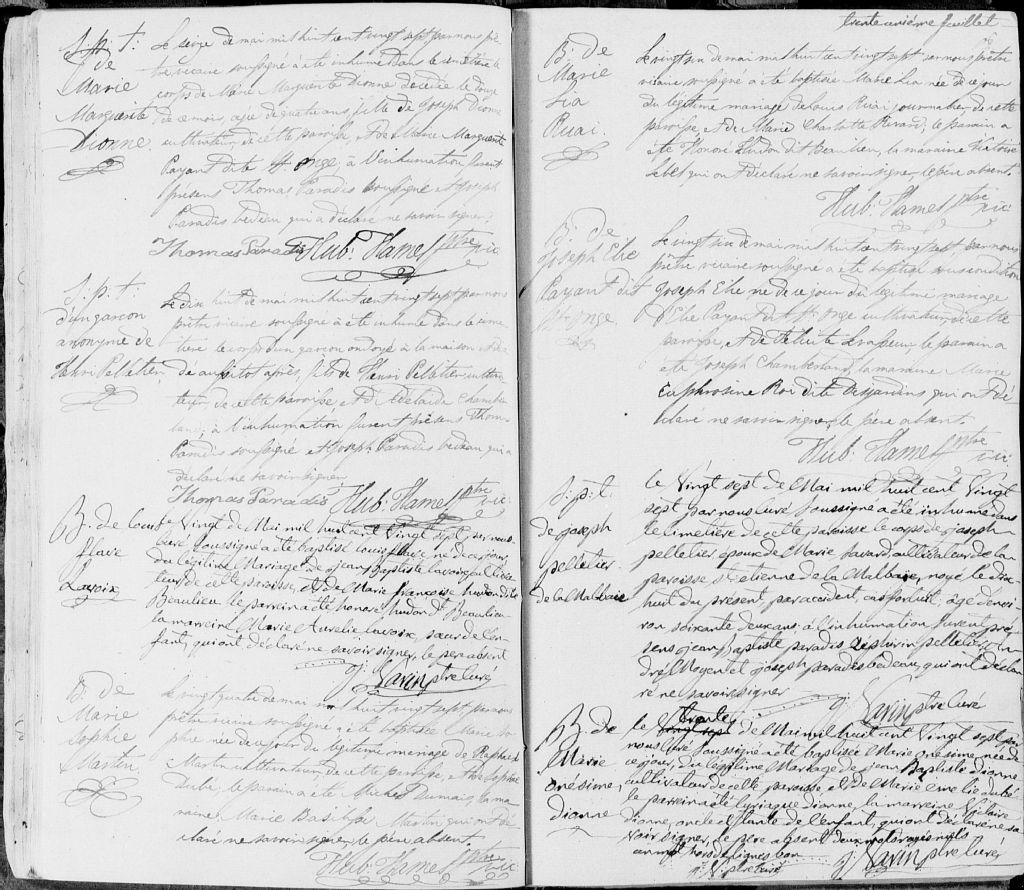 S. p. t.
de
Marie
Marguerite
Dionne
Le seize de mai mil huit cent vingt sept par nous prê-
tre vicaire soussigné a été inhumé dans le cimetière le
corps de Marie Marguerite Dionne décédée le douze
de ce mois, agée de quatre ans, fille de Joseph Dionne
cultivateur de cette paroisse, et de Marie Marguerite
Payant dite St. Onge; à l'inhumation furent
présens Thomas Paradis soussigné et Joseph
Paradis bedeau qui a déclaré ne savoir signer.
Thomas Paradis Hub: Hamel Ptre vic:
S. p. t.
d'un garçon
anonyme de
Henri Pelletier
Le dix huit de mai mil huit cent vingt sept par nous
prêtre vicaire soussigné a été inhumé dans le cime-
tière le corps d'un garçon ondoyé à la maison et dé-
cédé aussitot après, fils de Henri Pelletier cultiva-
teur de cette paroisse et de Adelaide Chamber
land; à l'inhumation furent présens Thomas
Paradis soussigné et Joseph Paradis bedeau qui a
déclaré ne savoir signer.
Thomas Paradis Hub: Hamel Ptre vic:
B. de louis
flave
Lavoix
le Vingt de Mai mil huit cent Vingt sept, par nous
Curé soussigné a été baptisé louis flave né de ce jour,
du légitime Mariage de jean Baptiste lavoix, cultiva-
teur de cette paroisse, et de Marie francoise hudon dite
Beaulieu. le parrein a été honoré hudon dt Beaulieu
la marreine Marie Aurelie lavoix, sœur de l'en-
fant, qui ont déclaré ne savoir signer, le pere absent
j: Varin ptre Curé
B. de
Marie
Sophie
Martin
Le vingt quatre de mai mil huit cent vingt sept par nous
prêtre vicaire soussigné a été baptisée Marie So-
phie née de ce jour du légitime mariage de Raphael
Martin cultivateur, de cette paroisse, et de Sophie
Dubé, le parrain a été Michel Dumais, la mar
raine Marie Martin qui ont dé-
claré ne savoir signer, le père absent.
Hub: Hamel Ptre vic
trente unième feuillet
B. de
Marie
Lia
Ruai.
Le vingt six de mai mil huit cent vingt sept par nous prêtre
vicaire soussigné a été baptisée Marie Lia née de ce jour
du légitime mariage de Louis Ruai journalier de cette
paroisse, et de Marie Charlotte Rivard, le parrain a
été Honoré Hudon dit Beaulieu, la marraine Victoire
Lebel qui ont déclaré ne savoir signer, le père absent.
Hub: Hamel Ptre vic:
B. de
Joseph Elie
Payant dit
St. Onge
Le vingt six de mai mil huit cent vingt sept, par nous
prêtre vicaire soussigné a été baptisé sous condition
Joseph Elie né de ce jour du légitime mariage
d'Elie Payant dit St. Onge cultivateur, de cette
paroisse, et de Felicité Levasseur, le parrain a
été Joseph Chamberland, la marraine Marie
Euphrosine Roi dite Desjardins qui ont dé-
claré ne savoir signer, le père absent.
Hub: Hamel Ptre vic:
S. p. t.
de joseph
pelletier
de la Malbaie
le Vingt sept de Mai mil huit cent Vingt
sept par nous Curé soussigné a été inhumé dans
le cimetière de cette paroisse le corps de joseph
pelletier époux de Marie savard, cultivateur de la
paroisse st etienne de la Malbaie, noyé le dix
huit du présent par accident, cas fortuit, âgé d'envi-
ron soixante deux ans, à l'inhumation furent pré-
sens jean Baptiste paradis, pelletier, an-
dré Moyen et joseph paradis bedeau, qui ont décla-
ré ne savoir signer
j: Varin ptre Curé
B. de
Marie
onésime,
dionne
le trente de Mai mil huit cent Vingt sept, par
nous Curé soussigné a été baptisée Marie onésime, née de
ce jour, du légitime Mariage de jean Baptiste dionne
cultivateur de cette paroisse, et de Marie emelie dubé
le parrein a été Cyriaque dionne, la marreine hilaire
dionne, oncle et tante de l'enfant, qui ont déclaré ne sa-
voir signer, le pere absent deux mots rayés nuls
un mot hors de lignes bon
j: V: ptre curé j: Varin ptre Curé